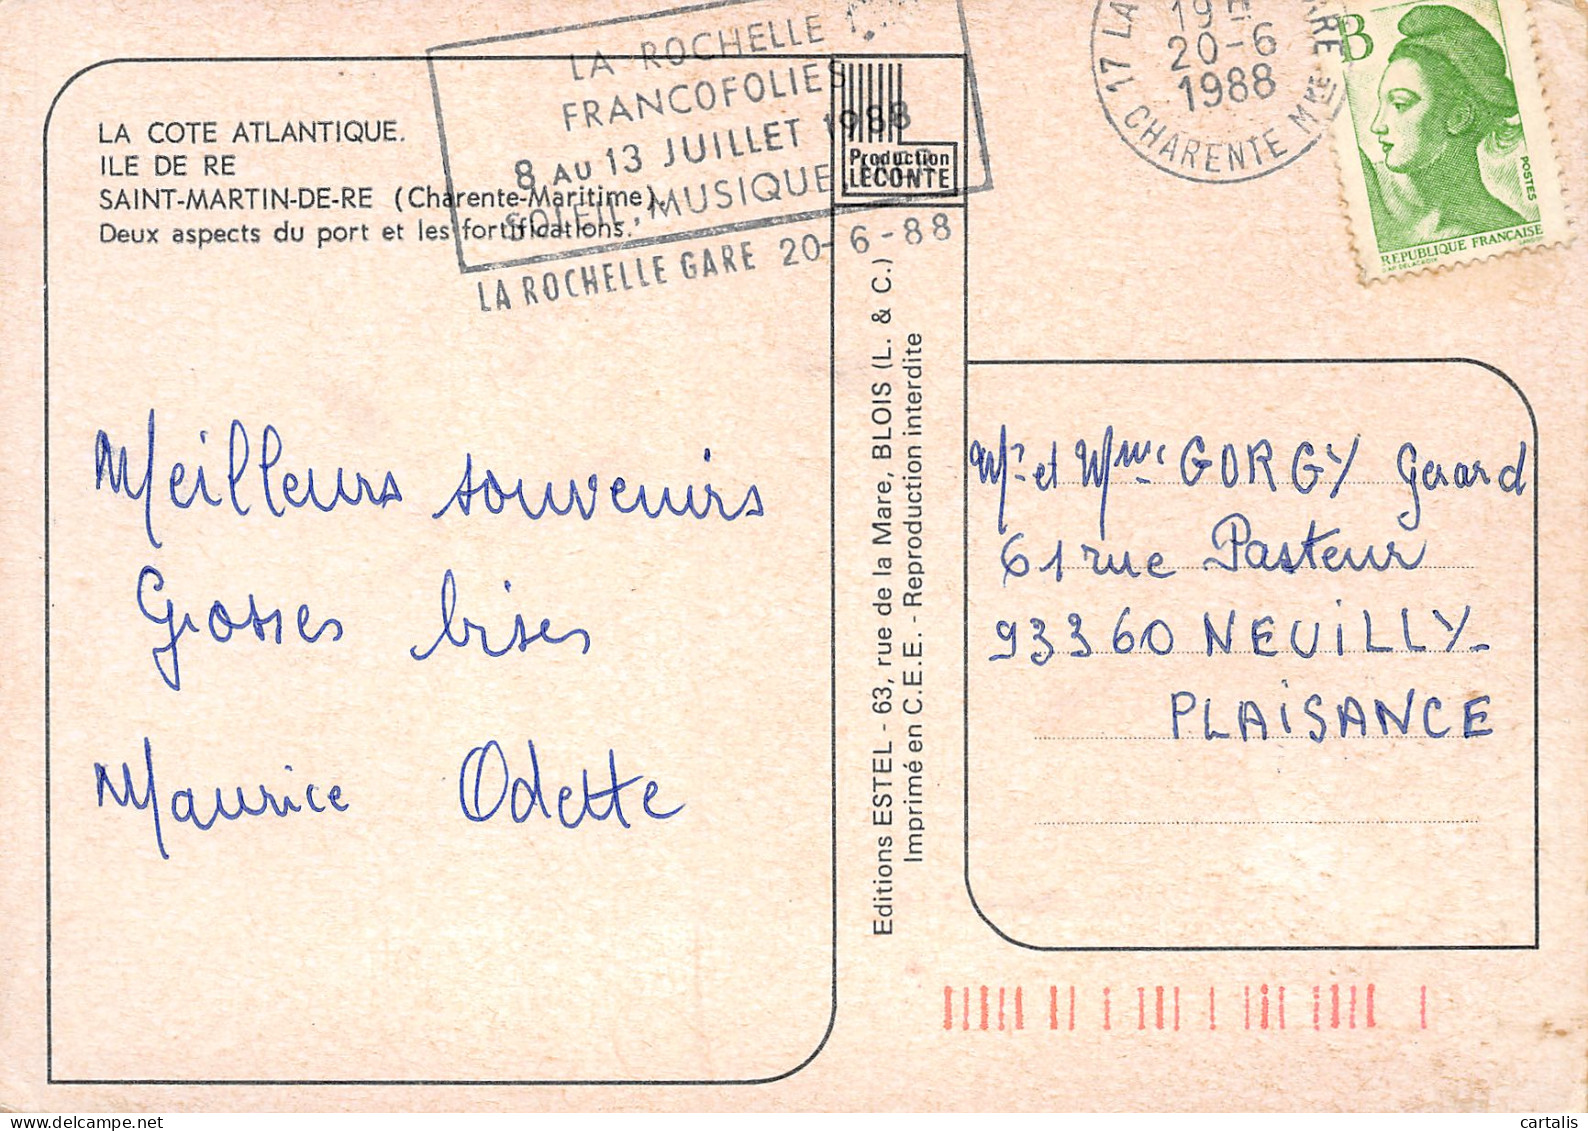 LA ROCHELLE
FRANCOFOLIES
8 AU 13 JUILLET 1988
SOLEIL, MUSIQUE
LA ROCHELLE GARE 20-6-88
17 LA
GARE
19
20-6
1988
CHARENTE Mme
B
POSTES
RÉPUBLIQUE FRANÇAISE
D'AP DELACROIX
LA COTE ATLANTIQUE.
ILE DE RE
SAINT-MARTIN-DE-RE (Charente-Maritime).
Deux aspects du port et les fortifications.
Production
LECONTE
Meilleurs souvenirs
Grosses bises
Maurice Odette
Editions ESTEL - 63, rue de la Mare, BLOIS (L. & C.)
Imprimé en C.E.E. - Reproduction interdite
Mr et Mme GORGY Gerard
61 rue Pasteur
93360 NEUILLY-
PLAISANCE
cartalis